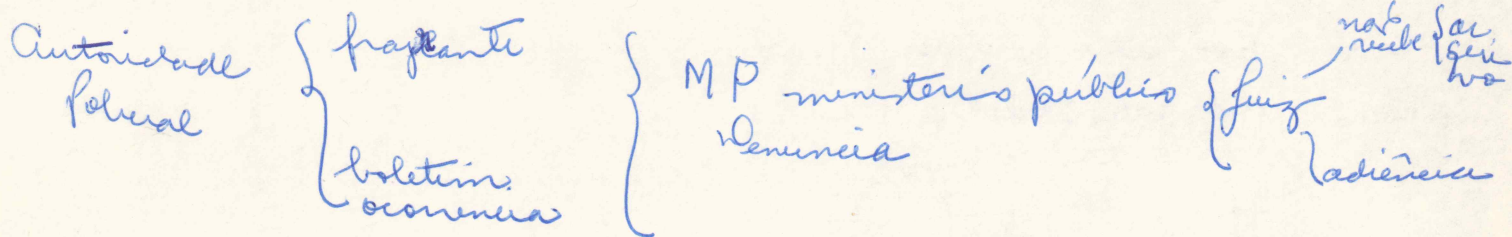 Autoridade
Policial
flagrante
boletim
ocorrencia
MP ministério público
Denuncia
juiz
não
recebe
ar
qui
vo
adiência